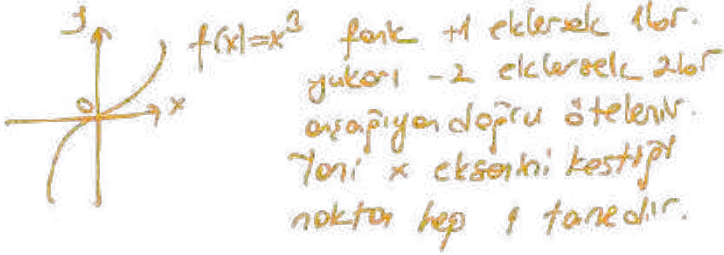 y
f(x)=x³ fonk +1 eklersek 1br.
yukarı -2 eklersek 2br
aşağıya doğru ötelenir.
0
x
Yani x eksenini kestiği
nokta hep 1 tanedir.